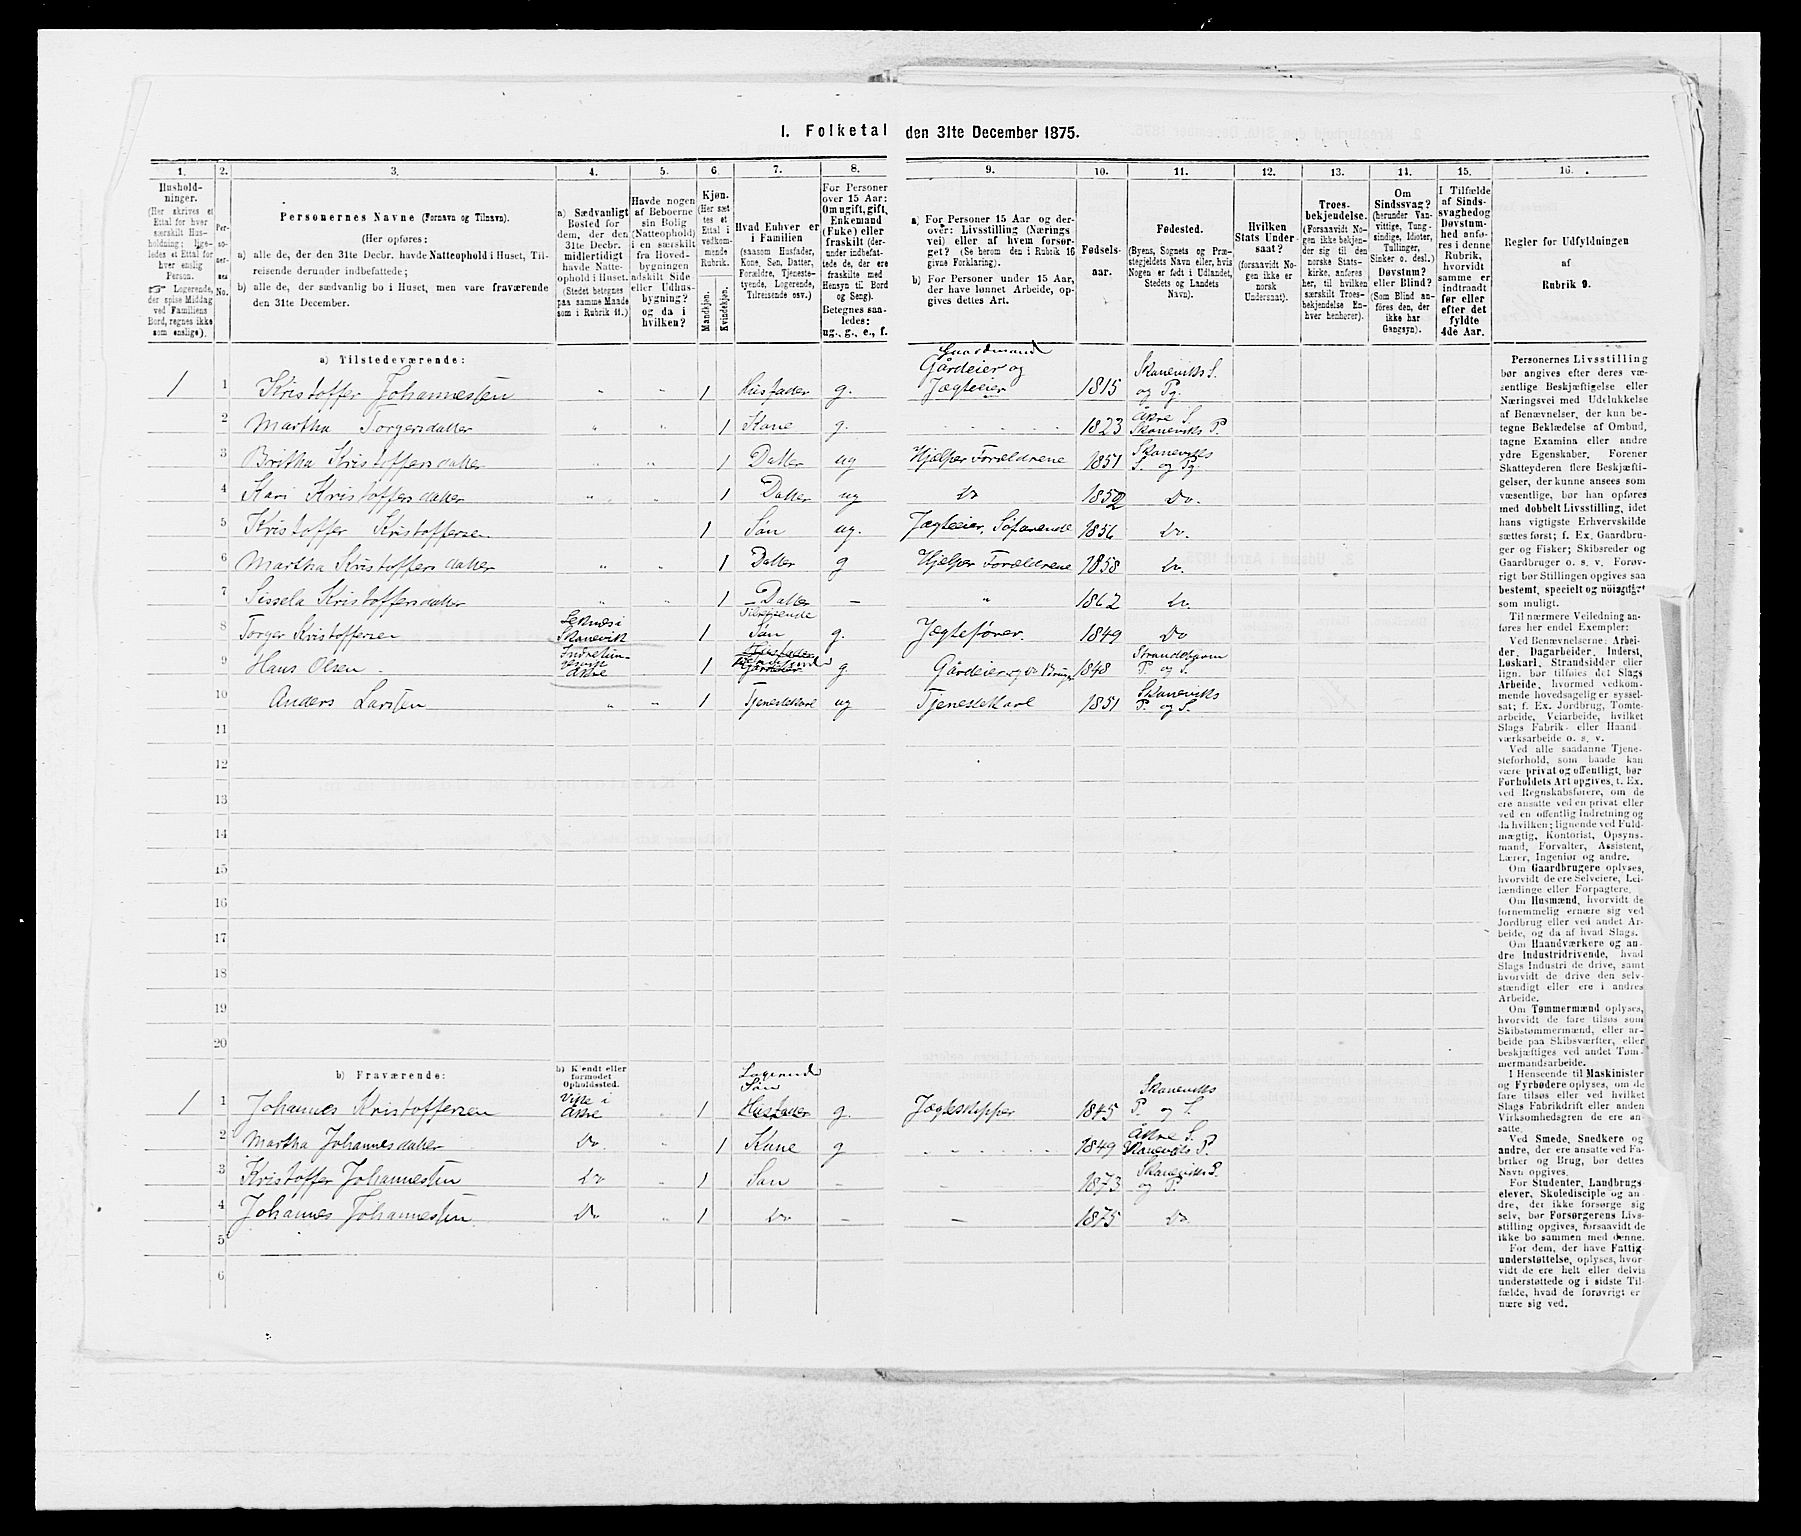 I. Folketal den 31te December 1875.
1. 2. 3. 4. 5. 6. 7. 8. 9. 10. 11. 12. 13. 14. 15. 16.
Hushold-
ninger.
(Her skrives et
Ettal for hver
særskilt Hus-
holdning; lige-
ledes et Ettal for
hver enslig
Person.
Logerende,
der spise Middag
ved Familiens
Bord, regnes ikke
som enslige).
Per-
so-
ner-
nes
No.
Personernes Navne (Fornavn og Tilnavn).
(Her opføres:
a) alle de, der den 31te Decbr. havde Natteophold i Huset, Til-
reisende derunder indbefattede;
b) alle de, der sædvanlig bo i Huset, men vare fraværende
den 31te December.
a) Sædvanligt
Bosted for
dem, der den
31te Decbr.
midlertidigt
havde Natte-
ophold i Huset.
(Stedet betegnes
paa samme Maade
som i Rubrik 11.)
Havde nogen
af Beboerne
sin Bolig
(Natteophold)
i en særskilt
fra Hoved-
bygningen
adskilt Side
eller Udhus-
bygning?
og da i
hvilken?
Kjøn.
(Her sæt-
tes et
Ettal i
vedkom-
mende
Rubrik.
Mandkjøn.
Kvindekjøn.
Hvad Enhver er
i Familien
(saasom Husfader,
Kone, Søn, Datter,
Forældre, Tjeneste-
tyende, Logerende,
Tilreisende osv.)
For Personer
over 15 Aar:
Om ugift, gift,
Enkemand
(Enke) eller
fraskilt (der-
under indbefat-
tede de, der ere
fraskilte med
Hensyn til Bord
og Seng).
Betegnes saa-
ledes:
ug., g., e., f.
a) For Personer 15 Aar og der-
over: Livsstilling (Nærings-
vei) eller af hvem forsør-
get? (Se herom den i Rubrik 16
givne Forklaring).
b) For Personer under 15 Aar,
der have lønnet Arbeide, op-
gives dettes Art.
Fødsels-
aar.
Fødested.
(Byens, Sognets og Præ-
stegjeldets Navn eller, hvis
Nogen er født i Udlandet,
Stedets og Landets
Navn).
Hvilken
Stats Under-
saat?
(forsaavidt No-
gen ikke er
norsk
Undersaat).
Troes-
bekjendelse.
(Forsaavidt No-
gen ikke bekjen-
der sig til den
norske Stats-
kirke, anføres
her, til hvilken
særskilt Troes-
bekjendelse En-
hver henhører).
Om
Sindssvag?
(herunder Van-
vittige, Tung-
sindige, Idioter,
Tullinger,
Sinker o. desl.)
Døvstum?
eller Blind?
(Som Blind an-
føres den, der
ikke har
Gangsyn).
I Tilfælde
af Sinds-
svaghed og
Døvstum-
hed anfø-
res i denne
Rubrik,
hvorvidt
samme er
indtraadt
før eller
efter det
fyldte
4de Aar.
Regler for Udfyldningen
af
Rubrik 9.
a) Tilstedeværende:
1 1 Kristoffer Johannesten " " 1 Husfader g. Gaardmand Gårdeier og Jægteeier 1815 Skaneviks S. og Pg.
2 Martha Torgersdatter " " 1 Kone g. 1823 Åkre S. Skaneviks P.
3 Britha Kristoffersdatter " " 1 Datter ug Hjelper Forældrene 1851 Skaneviks S. og Pg.
4 Kari Kristoffersdatter " " 1 Datter ug Do 1852 Do.
5 Kristoffer Kristoffersen 1 Søn ug. Jægteeier, Søfarende 1856 Do.
6 Martha Kristoffersdatter " " 1 Datter g Hjelper Forældrene 1858 Do.
7 Sissela Kristoffersdatter " " 1 Datter — " 1862 Do.
8 Torger Kristoffersen Skanevik 1 Tilreisende Søn g. Jægtefører. 1849 Do
9 Hans Olsen Åkre 1 g Gårdeier 1848 Strandebarm P. og S.
10 Anders Larsten " " 1 Tjenestekarl ug Tjenestekarl 1851 Skaneviks P. og S.
11
12
13
14
15
16
17
18
19
20
b) Fraværende: b) Kjendt eller
formodet
Opholdssted.
1 1 Johannes Kristoffersen Åkre " 1 Logerende Søn Husfader g. Jægteskipper 1845 Skaneviks P. og S.
2 Martha Johannesdatter Do. " 1 Kone g 1849 Åkre S. Skaneviks P.
3 Kristoffer Johannesten Do " 1 Søn — — 1873 Skaneviks S. og P.
4 Johannes Johannesten. Do " 1 Do — — 1875 Do.
5
6
Personernes Livsstilling
bør angives efter deres væ-
sentlige Beskjæftigelse eller
Næringsvei med Udelukkelse
af Benævnelser, der kun be-
tegne Beklædelse af Ombud,
tagne Examina eller andre
ydre Egenskaber. Forener
Skatteyderen flere Beskjæfti-
gelser, der kunne ansees som
væsentlige, bør han opføres
med dobbelt Livsstilling, idet
hans vigtigste Erhvervskilde
sættes først; f. Ex. Gaardbru-
ger og Fisker; Skibsreder og
Gaardbruger o. s. v. Forøv-
rigt bør Stillingen opgives saa
bestemt, specielt og nøiagtigt
som muligt.
Til nærmere Veiledning an-
føres her endel Exempler:
Ved Benævnelserne: Arbei-
der, Dagarbeider, Inderst,
Løskarl, Strandsidder eller
lign. bør tilføies det Slags
Arbeide, hvormed vedkom-
mende hovedsagelig er syssel-
sat; f. Ex. Jordbrug, Tomte-
arbeide, Veiarbeide, hvilket
Slags Fabrik- eller Haand-
værksarbeide o. s. v.
Ved alle saadanne Tjene-
steforhold, som baade kan
være privat og offentligt, bør
Forholdets Art opgives, t. Ex.
ved Regnskabsførere, om de
ere ansatte ved en privat eller
ved en offentlig Indretning og
da hvilken; lignende ved Fuld-
mægtig, Kontorist, Opsyns-
mand, Forvalter, Assistent,
Lærer, Ingeniør og andre.
Om Gaardbrugere oplyses,
hvorvidt de ere Selveiere, Lei-
lændinge eller Forpagtere.
Om Husmænd, hvorvidt de
fornemmelig ernære sig ved
Jordbrug eller ved andet Ar-
beide, og da af hvad Slags.
Om Haandværkere og an-
dre Industridrivende, hvad
Slags Industri de drive, samt
hvorvidt de drive den selv-
stændigt eller ere i andres
Arbeide.
Om Tømmermænd oplyses,
hvorvidt de fare tilsøs som
Skibstømmermænd, eller ar-
beide paa Skibsværfter, eller
beskjæftiges ved andet Tøm-
mermandsarbeide.
I Henseende til Maskinister
og Fyrbødere oplyses, om de
fare tilsøs eller ved hvilket
Slags Fabrikdrift eller anden
Virksomhedsgren de ere an-
satte.
Ved Smede, Snedkere og
andre, der ere ansatte ved Fa-
briker og Brug, bør dettes
Navn opgives.
For Studenter, Landbrugs-
elever, Skoledisciple og an-
dre, der ikke forsørge sig
selv, bør Forsørgerens Livs-
stilling opgives, forsaavidt de
ikke bo sammen med denne.
For dem, der have Fattig-
understøttelse, oplyses, hvor-
vidt de ere helt eller delvis
understøttede og i sidste Til-
fælde, hvad de forøvrigt er-
nære sig ved.